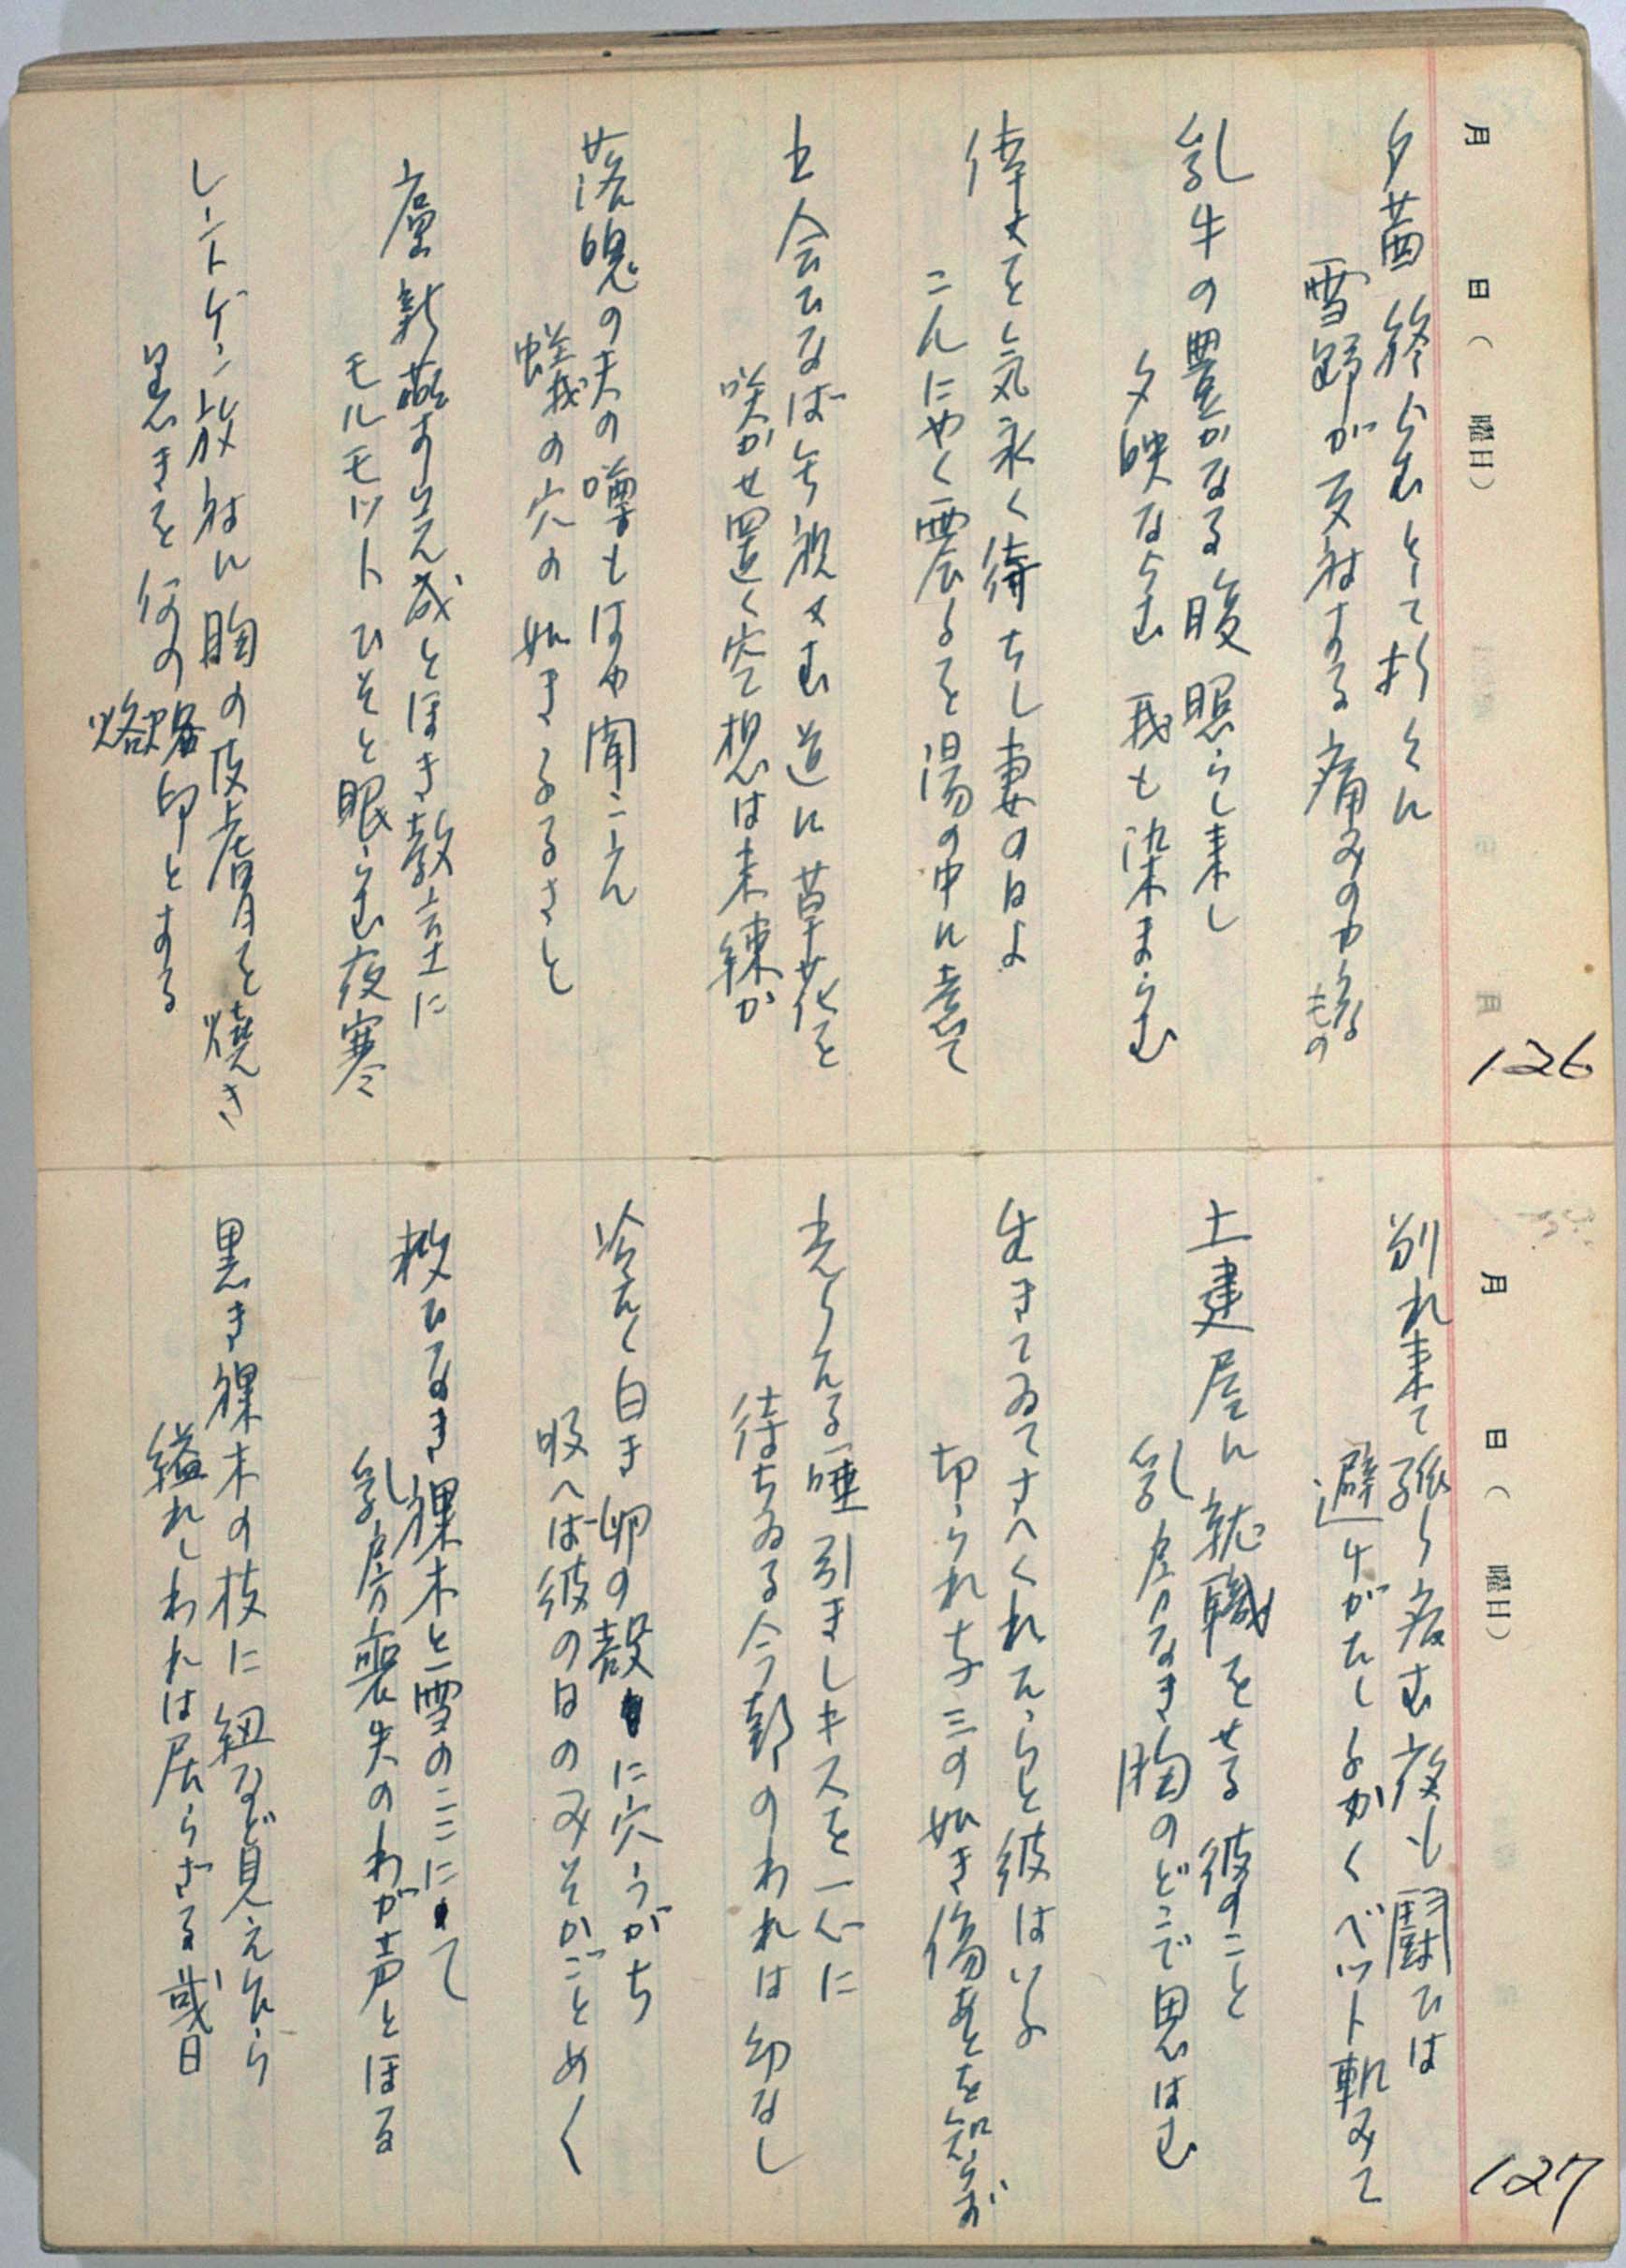 月 日( 曜日) 126
夕茜終らむとして折々に
雪野が反射する痛みの もの
乳牛の豊かなる腹照らし来し
夕映ならむ我も染まらむ
倖せを気永く待ちし妻の日よ
こんにやく震るを湯の中に煮て
出会ひなば 道に草花を
咲かせ置く空想は未練か
落魄の夫の噂もはや聞こえん
蟻の穴の如きふるさと
癌新薬 成とほき教室に
モルモット ひそと眠らむ夜寒
レントゲン放射に胸の皮膚を焼き
黒きを何の烙印とする
烙
月 日( 曜日) 127
別れ来て孤り病む夜も闘ひは
避けがたしよかくベット軋みて
土建屋に就職をせる彼のこと
乳房なき胸のどこで思はむ
生きてゐてさへくれたらと彼はいふ
切られ与三の如き傷あとを知らず
光りたる唾引きしキスを一心に
待ちゐる今朝のわれは幼なし
冷たく白き卵の殻に穴うがち
吸へば彼の日のみそかごとめく
救ひなき裸木と雪のここにて
乳房喪失のわが声とほる
黒き裸木の枝に紐など見え
縊れしわれは居らざる或日